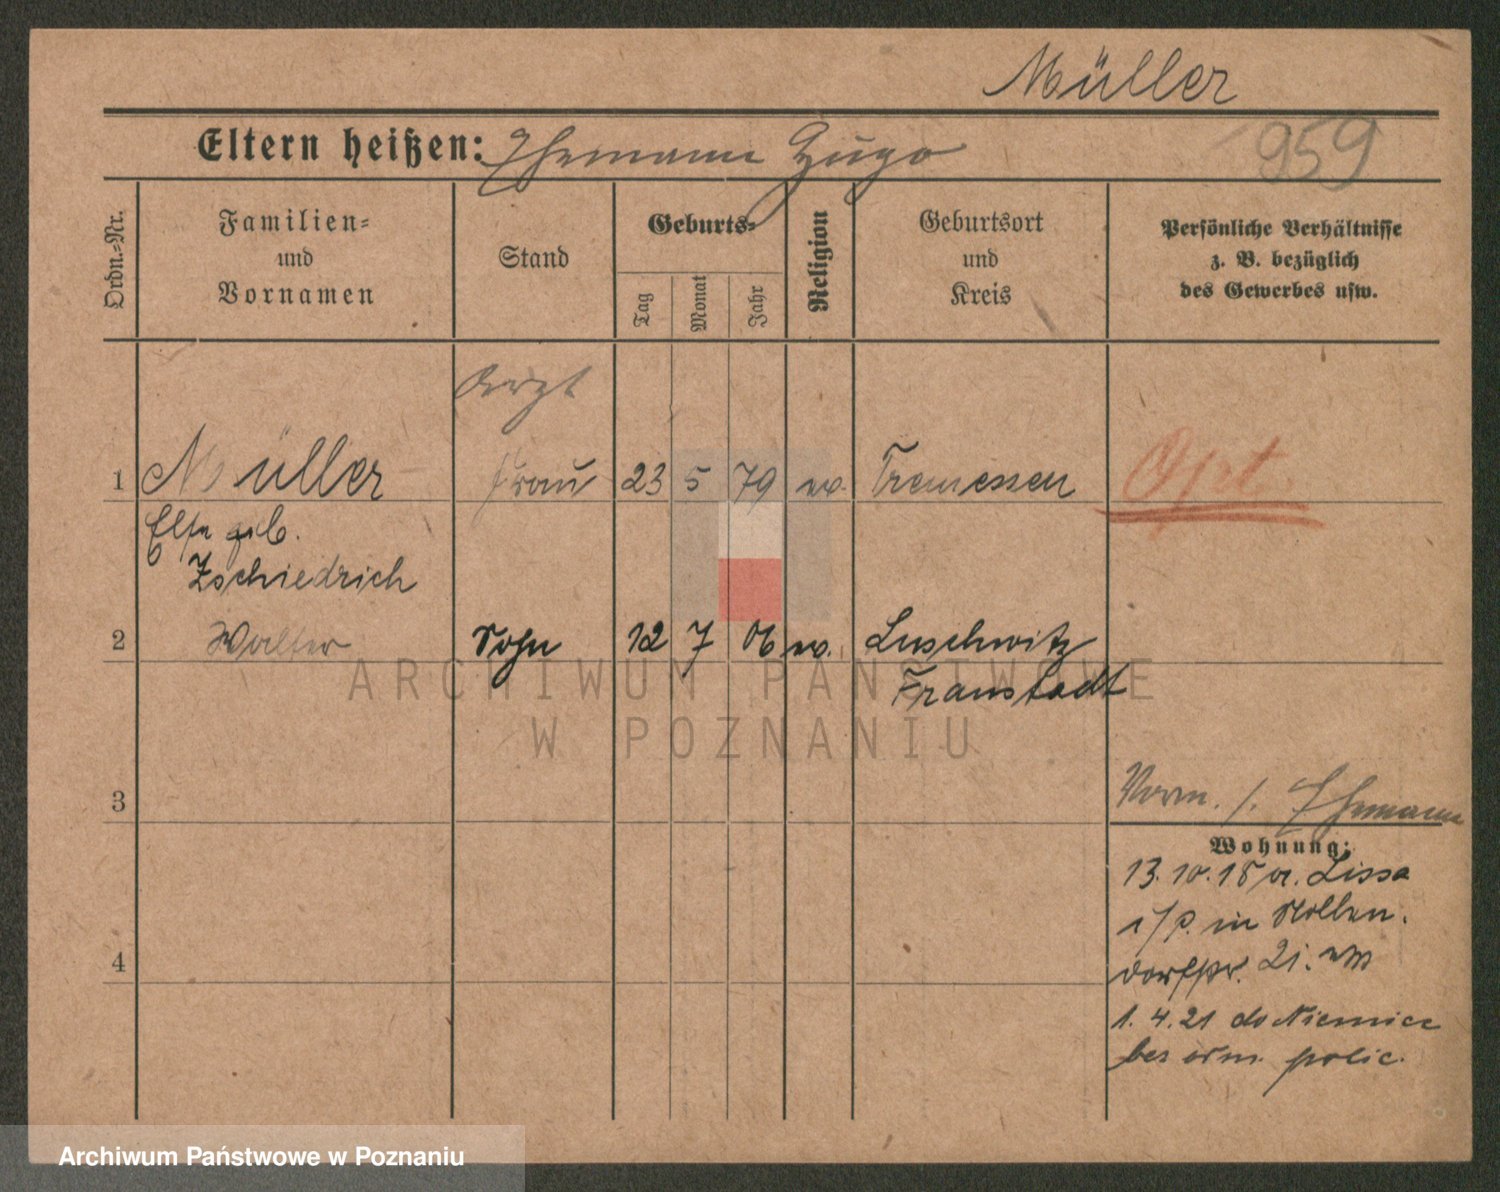 Müller
Eltern heißen: Ehemann Hugo
959
Ordn.=Nr.
Familien=
und
Vornamen
Stand
Geburts=
Tag
Monat
Jahr
Religion
Geburtsort
und
Kreis
Persönliche Verhältnisse
z. B. bezüglich
des Gewerbes usw.
Arzt
1 Müller Frau 23 5 79 ev. Tremessen Opt.
Else geb.
Zschiedrich
2 Walter Sohn 12 7 06 ev. Luschwitz
Fraustadt
3
Vorm. s. Ehemann
Wohnung:
13.10.18 a. Lissa
i/P. in Nollen.
dorfstr. 21.
4
1.4.21 do Niemiec
bez polic.
ARCHIWUM PAŃSTWOWE
W POZNANIU
Archiwum Państwowe w Poznaniu